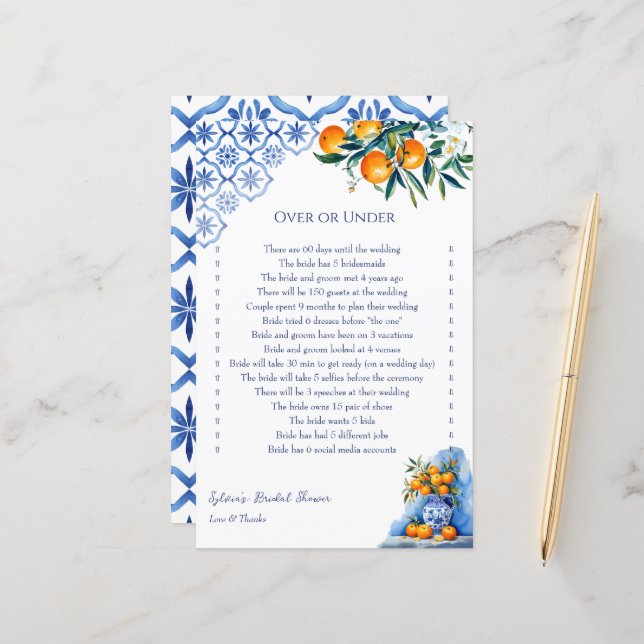 Over or Under
⇧ There are 00 days until the wedding ⇩
⇧ The bride has 5 bridesmaids ⇩
⇧ The bride and groom met 4 years ago ⇩
⇧ There will be 150 guests at the wedding ⇩
⇧ Couple spent 9 months to plan their wedding ⇩
⇧ Bride tried 0 dresses before "the one" ⇩
⇧ Bride and groom have been on 3 vacations ⇩
⇧ Bride and groom looked at 4 venues ⇩
⇧ Bride will take 30 min to get ready (on a wedding day) ⇩
⇧ The bride will take 5 selfies before the ceremony ⇩
⇧ There will be 3 speeches at their wedding ⇩
⇧ The bride owns 15 pair of shoes ⇩
⇧ The bride wants 5 kids ⇩
⇧ Bride has had 5 different jobs ⇩
⇧ Bride has 0 social media accounts ⇩
Sylvia's Bridal Shower
Love & Thanks